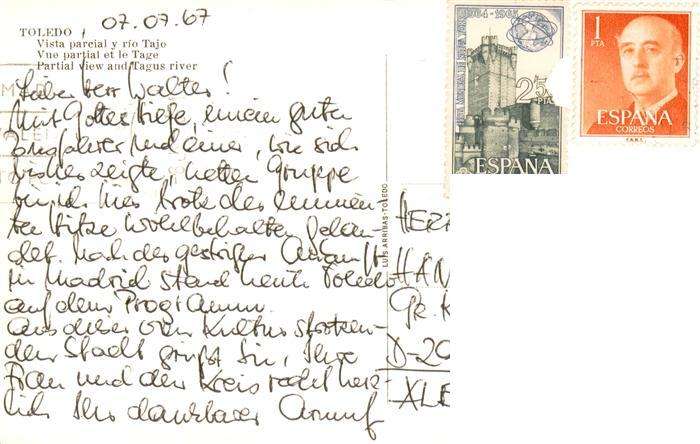 07.07.67
TOLEDO
Vista parcial y río Tajo
Vue partial et le Tage
Partial view and Tagus river
Lieber Herr Walter!
Mit Gottes Hilfe, einem guten
Busfahrer und einer, wie sich
bisher zeigte, netten Gruppe
bin ich hier trotz des
ten Hitze wohlbehalten gelan-
det. Nach der gestrigen Ankunft
in Madrid stand heute Toledo
auf dem Programm.
Aus dieser von Kultur strotzen-
den Stadt grüßt Sie, Ihre
Frau und den Kreis recht herz-
lich Ihr dankbarer
LUIS ARRIBAS-TOLEDO
HER
HAN
GR. K
D-20
XLE
1964-1965
2'50
PTA
ESPAÑA
1
PTA
ESPAÑA
CORREOS